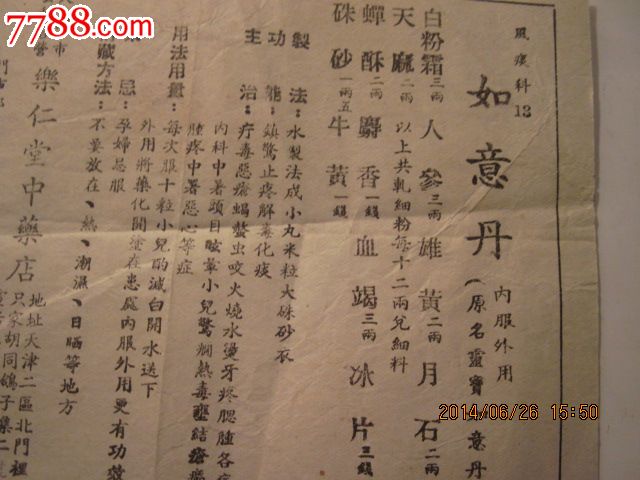 風痰科13
如意丹
內服外用
(原名靈寶如意丹
白粉霜三兩 人參三兩 雄黃二兩 月石二兩
天麻二兩 以上共軋細粉每十二兩兌細料
蟬酥二兩 麝香一錢 血竭三兩 冰片三錢
硃砂一兩五 牛黃一錢
製法:水製法成小丸米粒大硃砂衣
功能:鎮驚止疼解毒化痰
主治:疔毒惡瘡蝎螫虫咬火燒水燙牙疼腮腫各
內科中暑頭目眩暈小兒驚癇熱毒壅結瘡瘍
腫疼中暑惡心等症
用法用量:每次服十粒小兒酌減白開水送下
外用將藥化開塗在患處內服外用更有功效
忌:孕婦忌服
藏方法:不要放在、熱、潮濕、日晒等地方
市
營
樂仁堂中藥店
地址天津二區北門裡
只家胡同鴿子集二
門市部
7788.com
2014/06/26 15:50